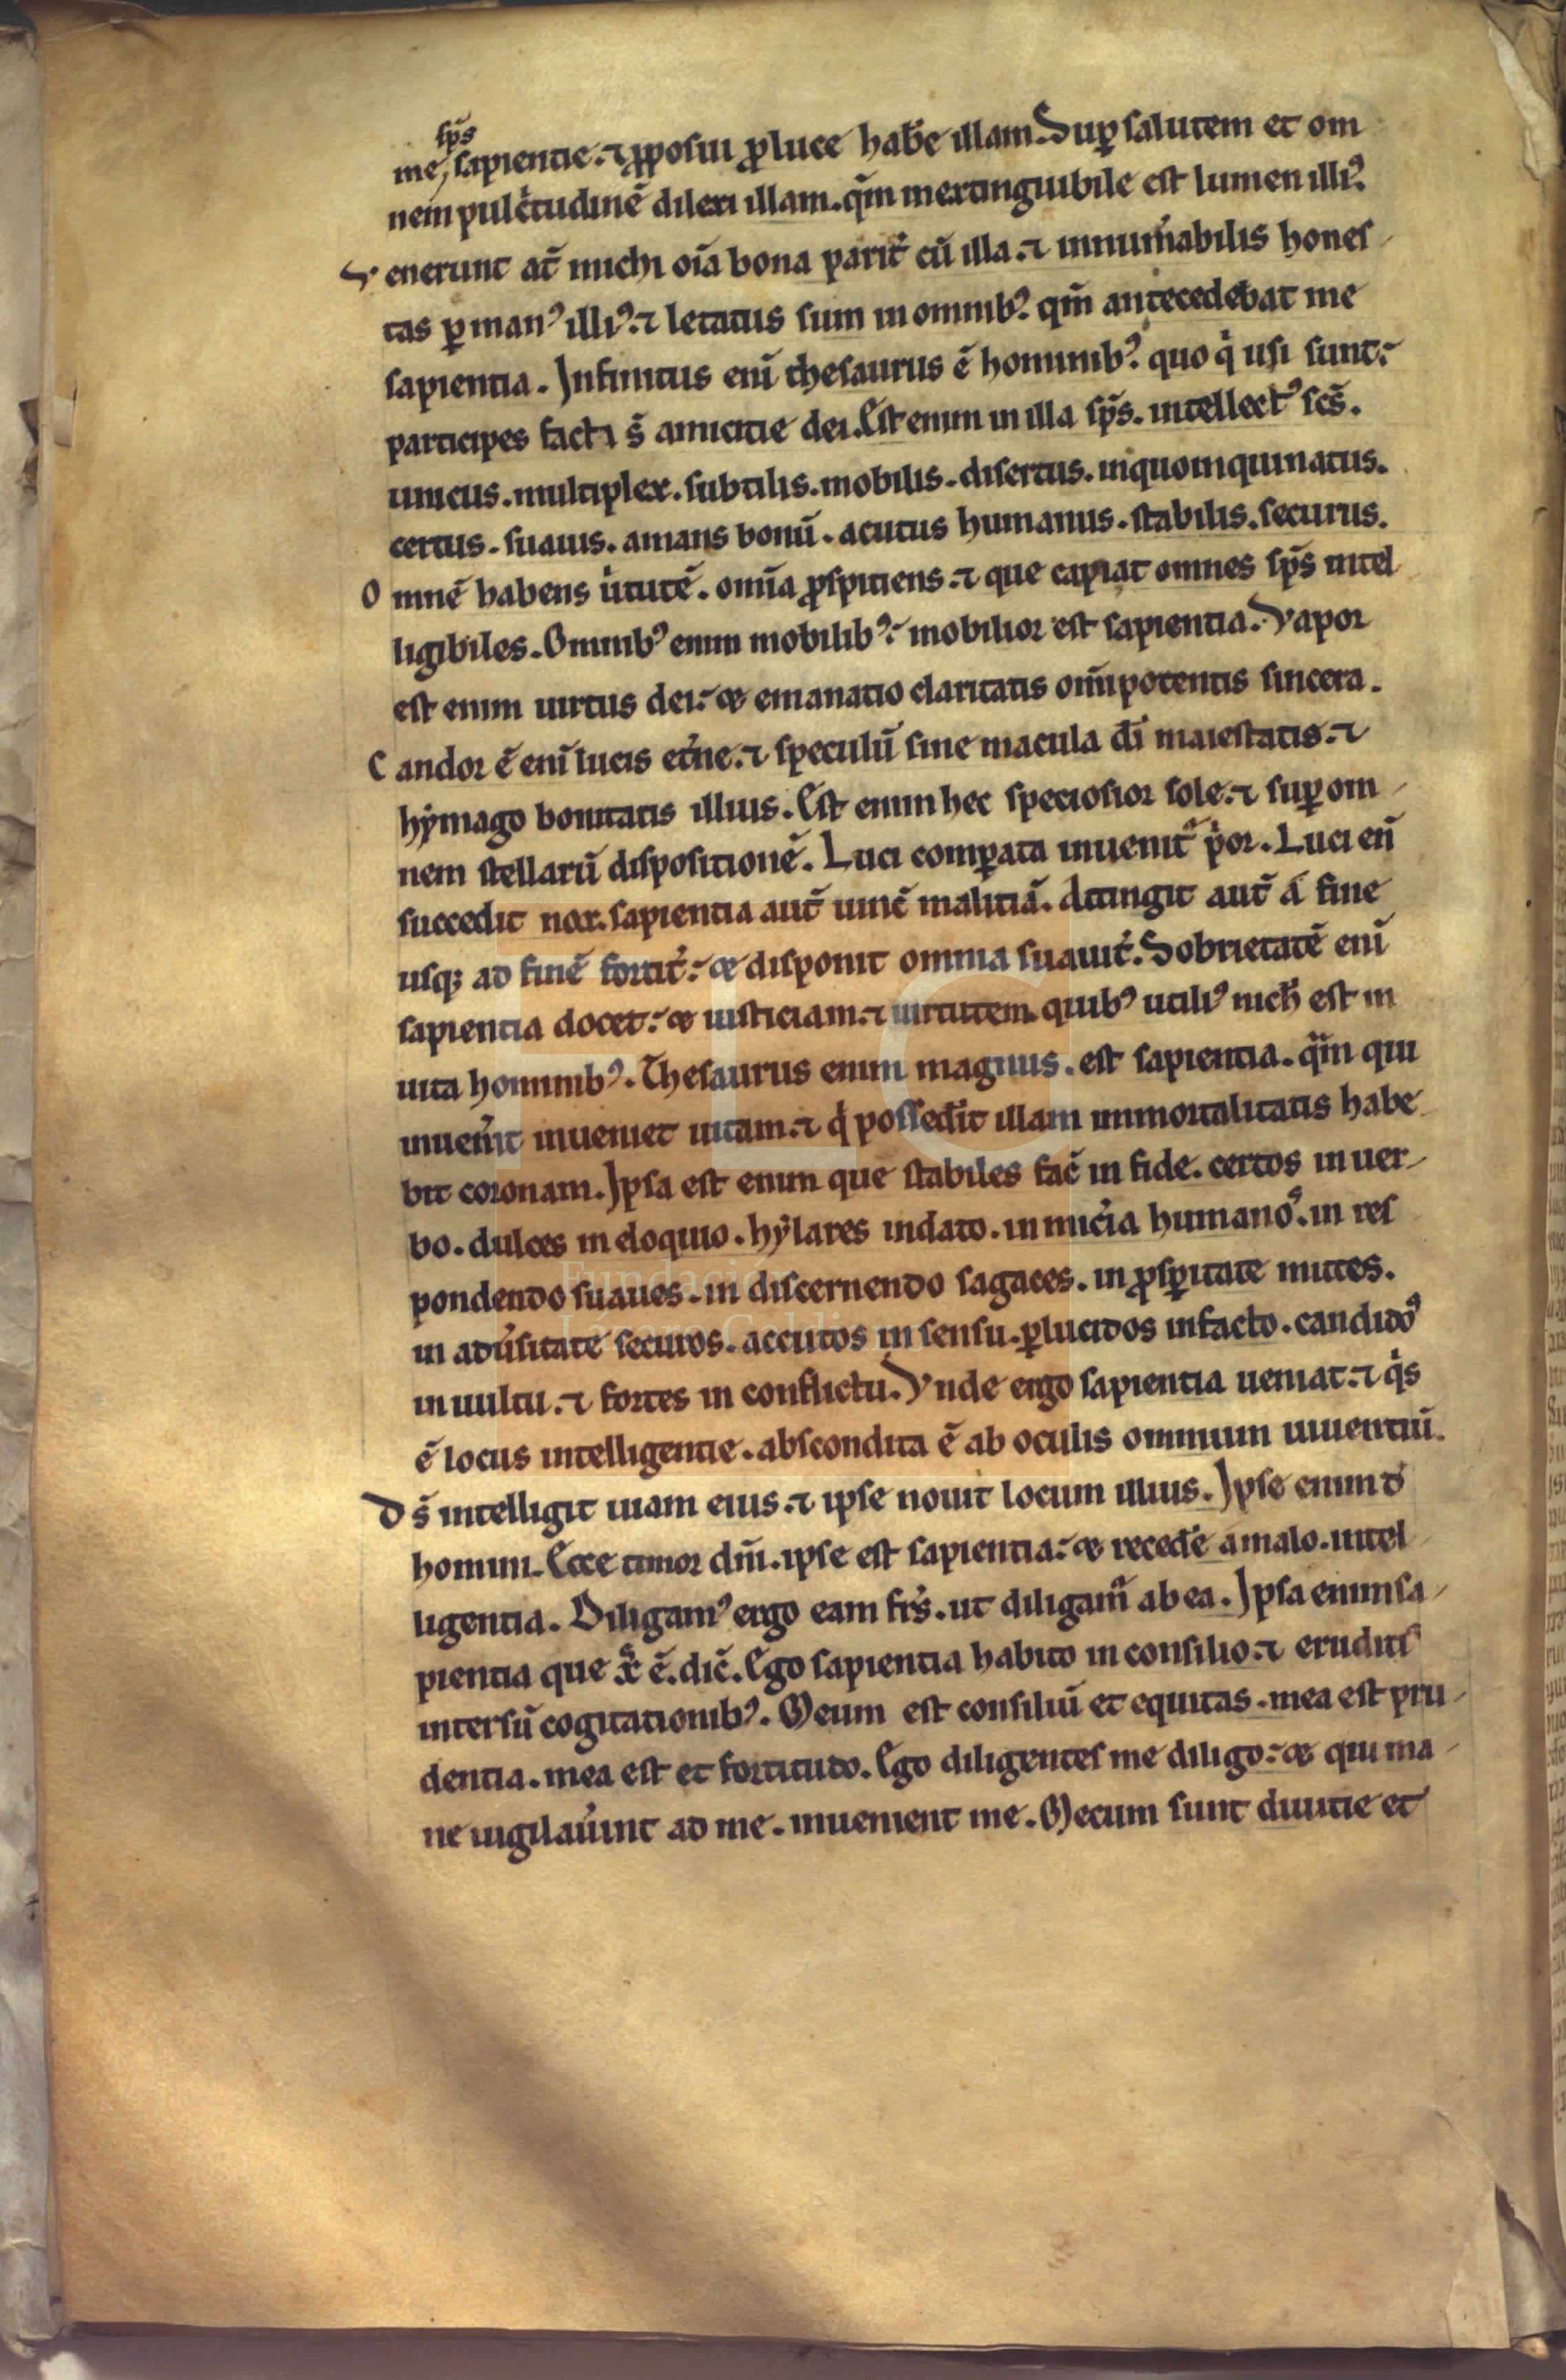 sp̄s
me, sapientie. ⁊ ꝓposui ꝓ luce hab̄e illam. Suꝑ salutem et om
nem pulc̄tudinē dilexi illam. qm̄ inextinguibile est lumen illiꝰ.
Venerunt at̄ michi oīa bona parit̄ cū illa. ⁊ innum̄abilis hones
tas ꝑ manꝰ illiꝰ. ⁊ letatus sum in omnibꝰ. qm̄ antecedebat me
sapientia. Infinitus enī thesaurus ē hominibꝰ. quo q̇ usi sunt.
participes facti s̄ amicitie dei. Est enim in illa sp̄s. intellectꝰ sc̄s.
unicus. multiplex. subtilis. mobilis. disertus. inquoinquinatus.
certus. suauis. amans bonū. acutus humanus. stabilis. securus.
Omnē habens u̇tutē. omīa ꝓspiciens. ⁊ que capiat omnes sp̄s intel
ligibiles. Omnibꝰ enim mobilibꝰ. mobilior est sapientia. Vapor
est enim uirtus dei. & emanatio claritatis omīpotentis sincera.
Candor ē enī lucis et̄ne. ⁊ speculū sine macula dī maiestatis. ⁊
hẏmago bonitatis illius. Est enim hec speciosior sole. ⁊ suꝑ om
nem stellarū dispositionē. Luci comꝑata inuenit᷑ ṗor. Luci en̄
succedit nox. sapientia aut̄ uinc̄ malitiā. Attingit aut̄ a fine
usq; ad finē fortit̄. & disponit omnia suauit̄. Sobrietatē enī
sapientia docet. & iusticiam. ⁊ uirtutem. quibꝰ utiliꝰ nich̄ est in
uita hominibꝰ. Thesaurus enim magnus. est sapientia. qm̄ qui
inuen̄it inueniet uitam. ⁊ q̇ possed̄it illam inmortalitatis habe
bit coronam. Ipsa est enim que stabiles fac̄ in fide. certos in uer
bo. dulces in eloquio. hẏlares in dato. in mic̄ia humanoˢ. in res
pondendo suaues. in discernendo sagaces. in ꝓsꝑitate mittes.
in adu̇sitate securos. accutos in sensu. ꝑlucidos in facto. candidoˢ
in uultu. ⁊ fortes in conflictu. Vnde ergo sapientia ueniat. ⁊ q̇s
ē locus intelligentie. abscondita ē ab oculis omnium uiuentiū.
Ds̄ intelligit uiam eius. ⁊ ipse nouit locum illius. Ipse enim d̄
homini. Ecce timor dm̄. ipse est sapientia. & reced̄e a malo. intel
ligentia. Diligamꝰ ergo eam frs̄. ut diligam᷑ ab ea. Ipsa enim sa
pientia que xp̄ ē. dic̄. Ego sapientia habito in consilio. ⁊ eruditˢ
intersū cogitationibꝰ. Meum est consiliū et equitas. mea est pru
dentia. mea est et fortitudo. Ego diligentes me diligo. & qui ma
ne uigilau̇int ad me. inuenient me. Mecum sunt diuitie et